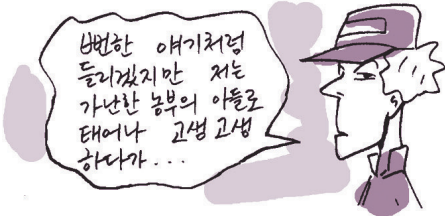 뻔한 얘기처럼
들리겠지만 저는
가난한 농부의 아들로
태어나 고생고생
하다가...